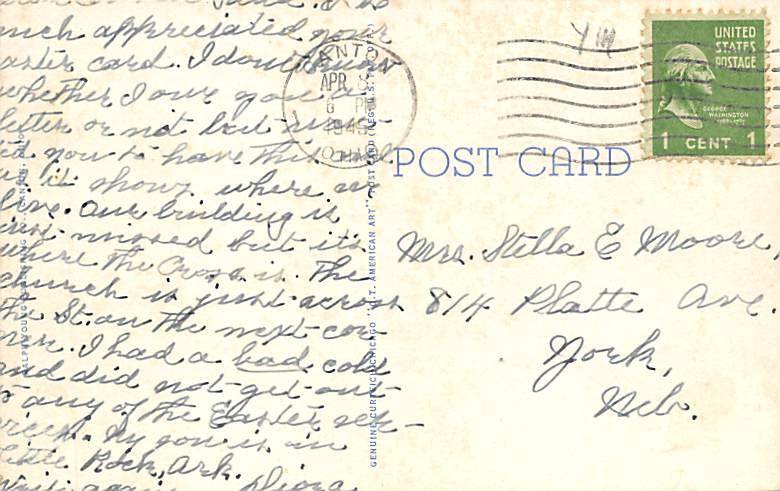 much appreciated your
Easter card. I don't know
whether I owe you a
letter or not but
you to have this card
it shows where we
live. Our building is
just missed but it's
where the Cross is. The
church is just across
the St. on the next cor-
ner. I had a bad cold
and did not get out
to any of the Easter ser-
vices. My son is in
Little Rock, Ark.
Write again.
CANTON
APR
6 PM
1945
OHIO
GENUINE CURTEICH-CHICAGO "C.T. AMERICAN ART" POST CARD (REG. U.S. PAT. OFF.)
POST CARD
UNITED
STATES
POSTAGE
GEORGE
WASHINGTON
1 CENT 1
Mrs. Stella E Moore,
814 Platte Ave.
York,
Neb.